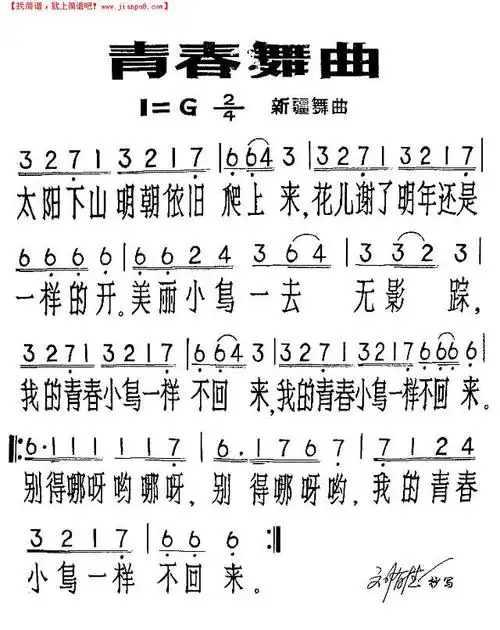 【找简谱,就上简谱吧!】
www.jianpu8.com
青春舞曲
1=G 2/4 新疆舞曲
3271 3217 | 6643 | 3271 3217 |
太阳下山 明朝依旧 爬上 来,花儿谢了明年还是
666 6 | 6624 | 364 | 3323 |
一样的开。美丽小鸟一去 无影 踪,
3271 3217 | 6643 | 3271 3217 | 6666 |
我的青春小鸟一样 不回 来,我的青春小鸟一样不回来。
‖: 6·111 117 | 6·176 7 | 7124 |
别得哪呀哟哪呀, 别 得哪呀哟, 我的青春
3217 | 66 6 :‖
小鸟一样 不回来。
抄写